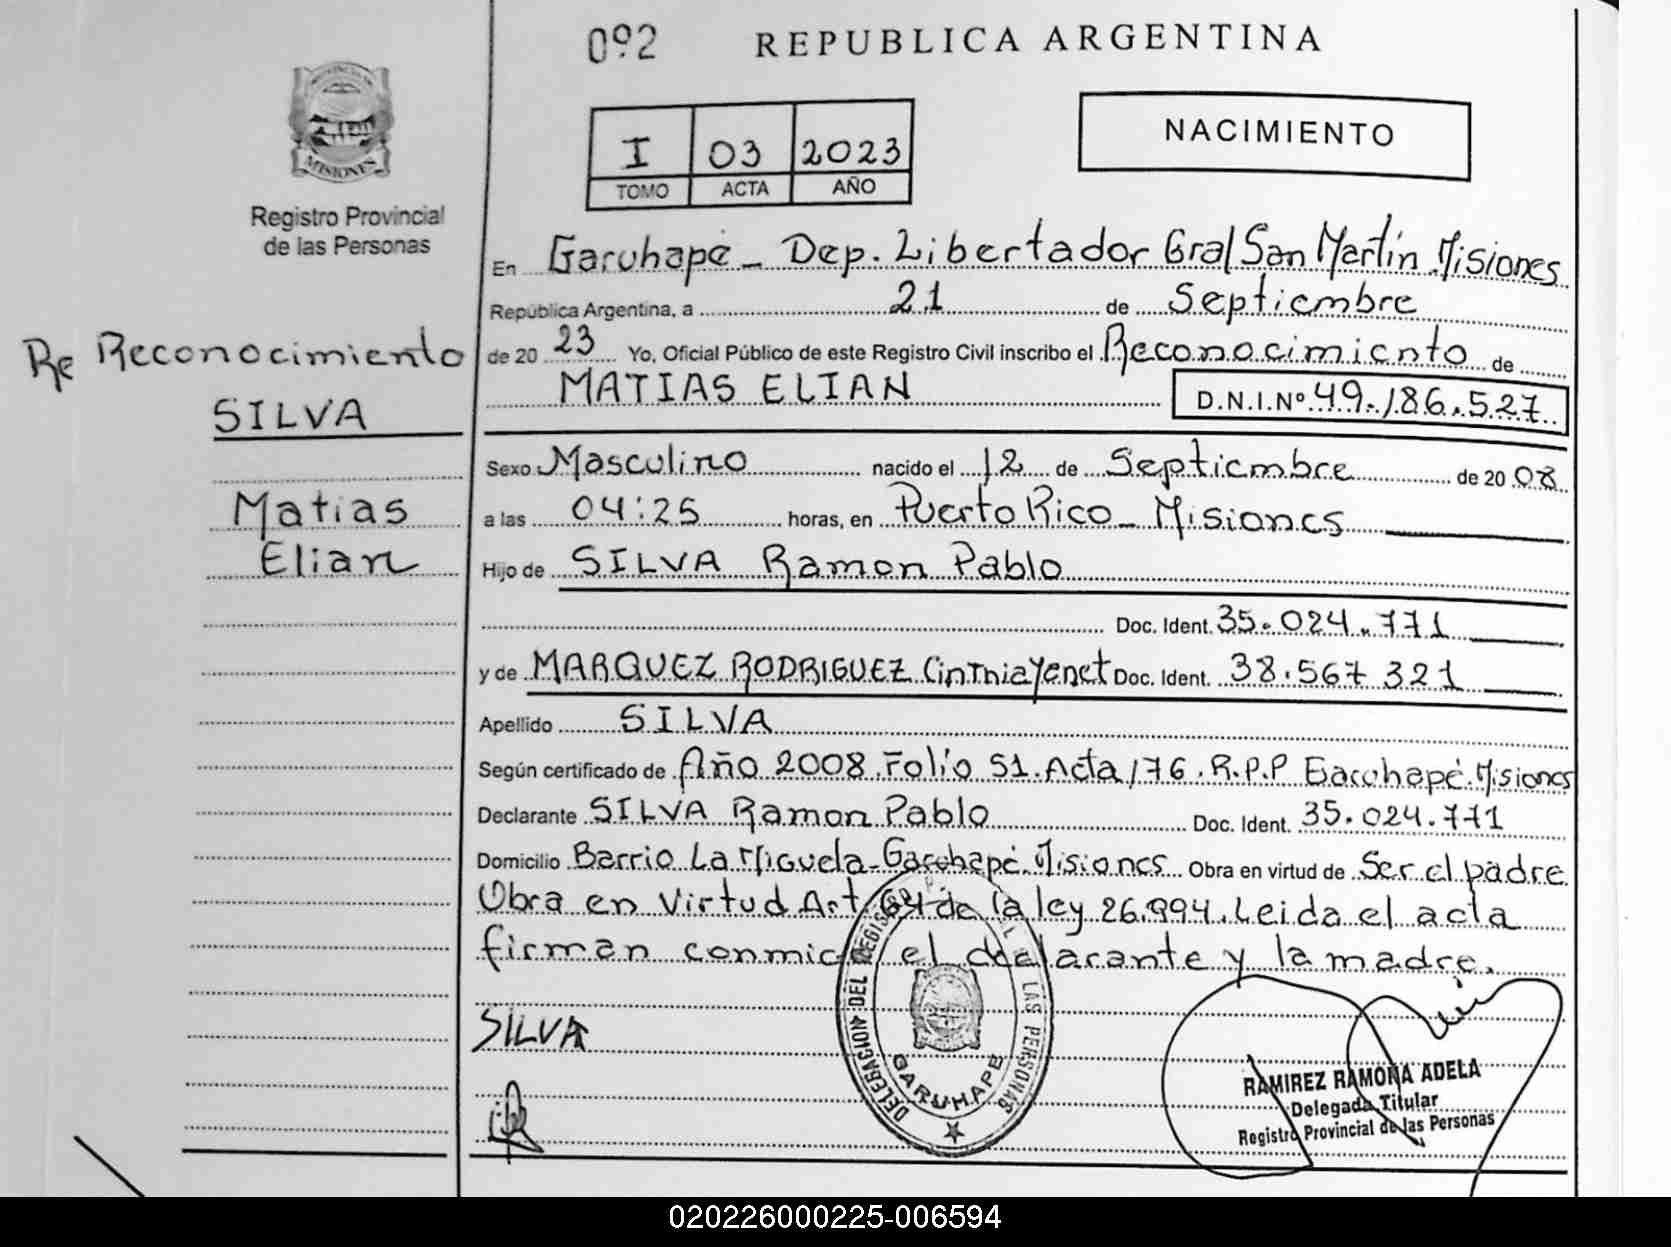 092
REPUBLICA ARGENTINA
PROVINCIA DE
MISIONES
Registro Provincial
de las Personas
I 03 2023
TOMO ACTA AÑO
NACIMIENTO
En Garuhapé - Dep. Libertador Gral San Martín. Misiones
República Argentina, a 21 de Septiembre
de 20 23 Yo, Oficial Público de este Registro Civil inscribo el Reconocimiento de
MATIAS ELIAN D.N.I.Nº 49.186.527
Re Reconocimiento
SILVA
Matias
Elian
Sexo Masculino nacido el 12 de Septiembre de 20 08
a las 04:25 horas, en Puerto Rico - Misiones
Hijo de SILVA Ramon Pablo
Doc. Ident. 35.024.771
y de MARQUEZ RODRIGUEZ Cinthia Yenet Doc. Ident. 38.567 321
Apellido SILVA
Según certificado de Año 2008. Folio 51. Acta 176. R.P.P Garuhapé. Misiones
Declarante SILVA Ramon Pablo Doc. Ident. 35.024.771
Domicilio Barrio La Miguela - Garuhapé. Misiones Obra en virtud de Ser el padre
Obra en virtud Art 64 de la ley 26.994. Leida el acta
firman conmigo el declarante y la madre.
SILVA
DELEGACION DEL REGISTRO LAS PERSONAS
GARUHAPE
RAMIREZ RAMONA ADELA
Delegada Titular
Registro Provincial de las Personas
020226000225-006594